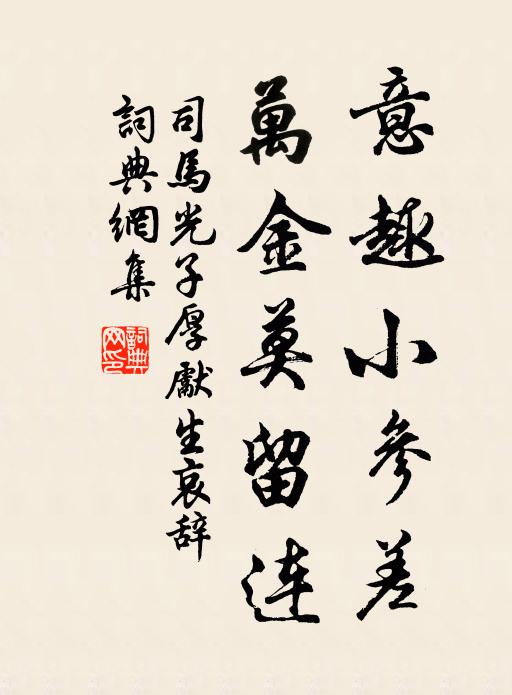 意趣小參差
萬金莫留連
司馬光子厚獻生哀辞
詞典網集
詞典网印